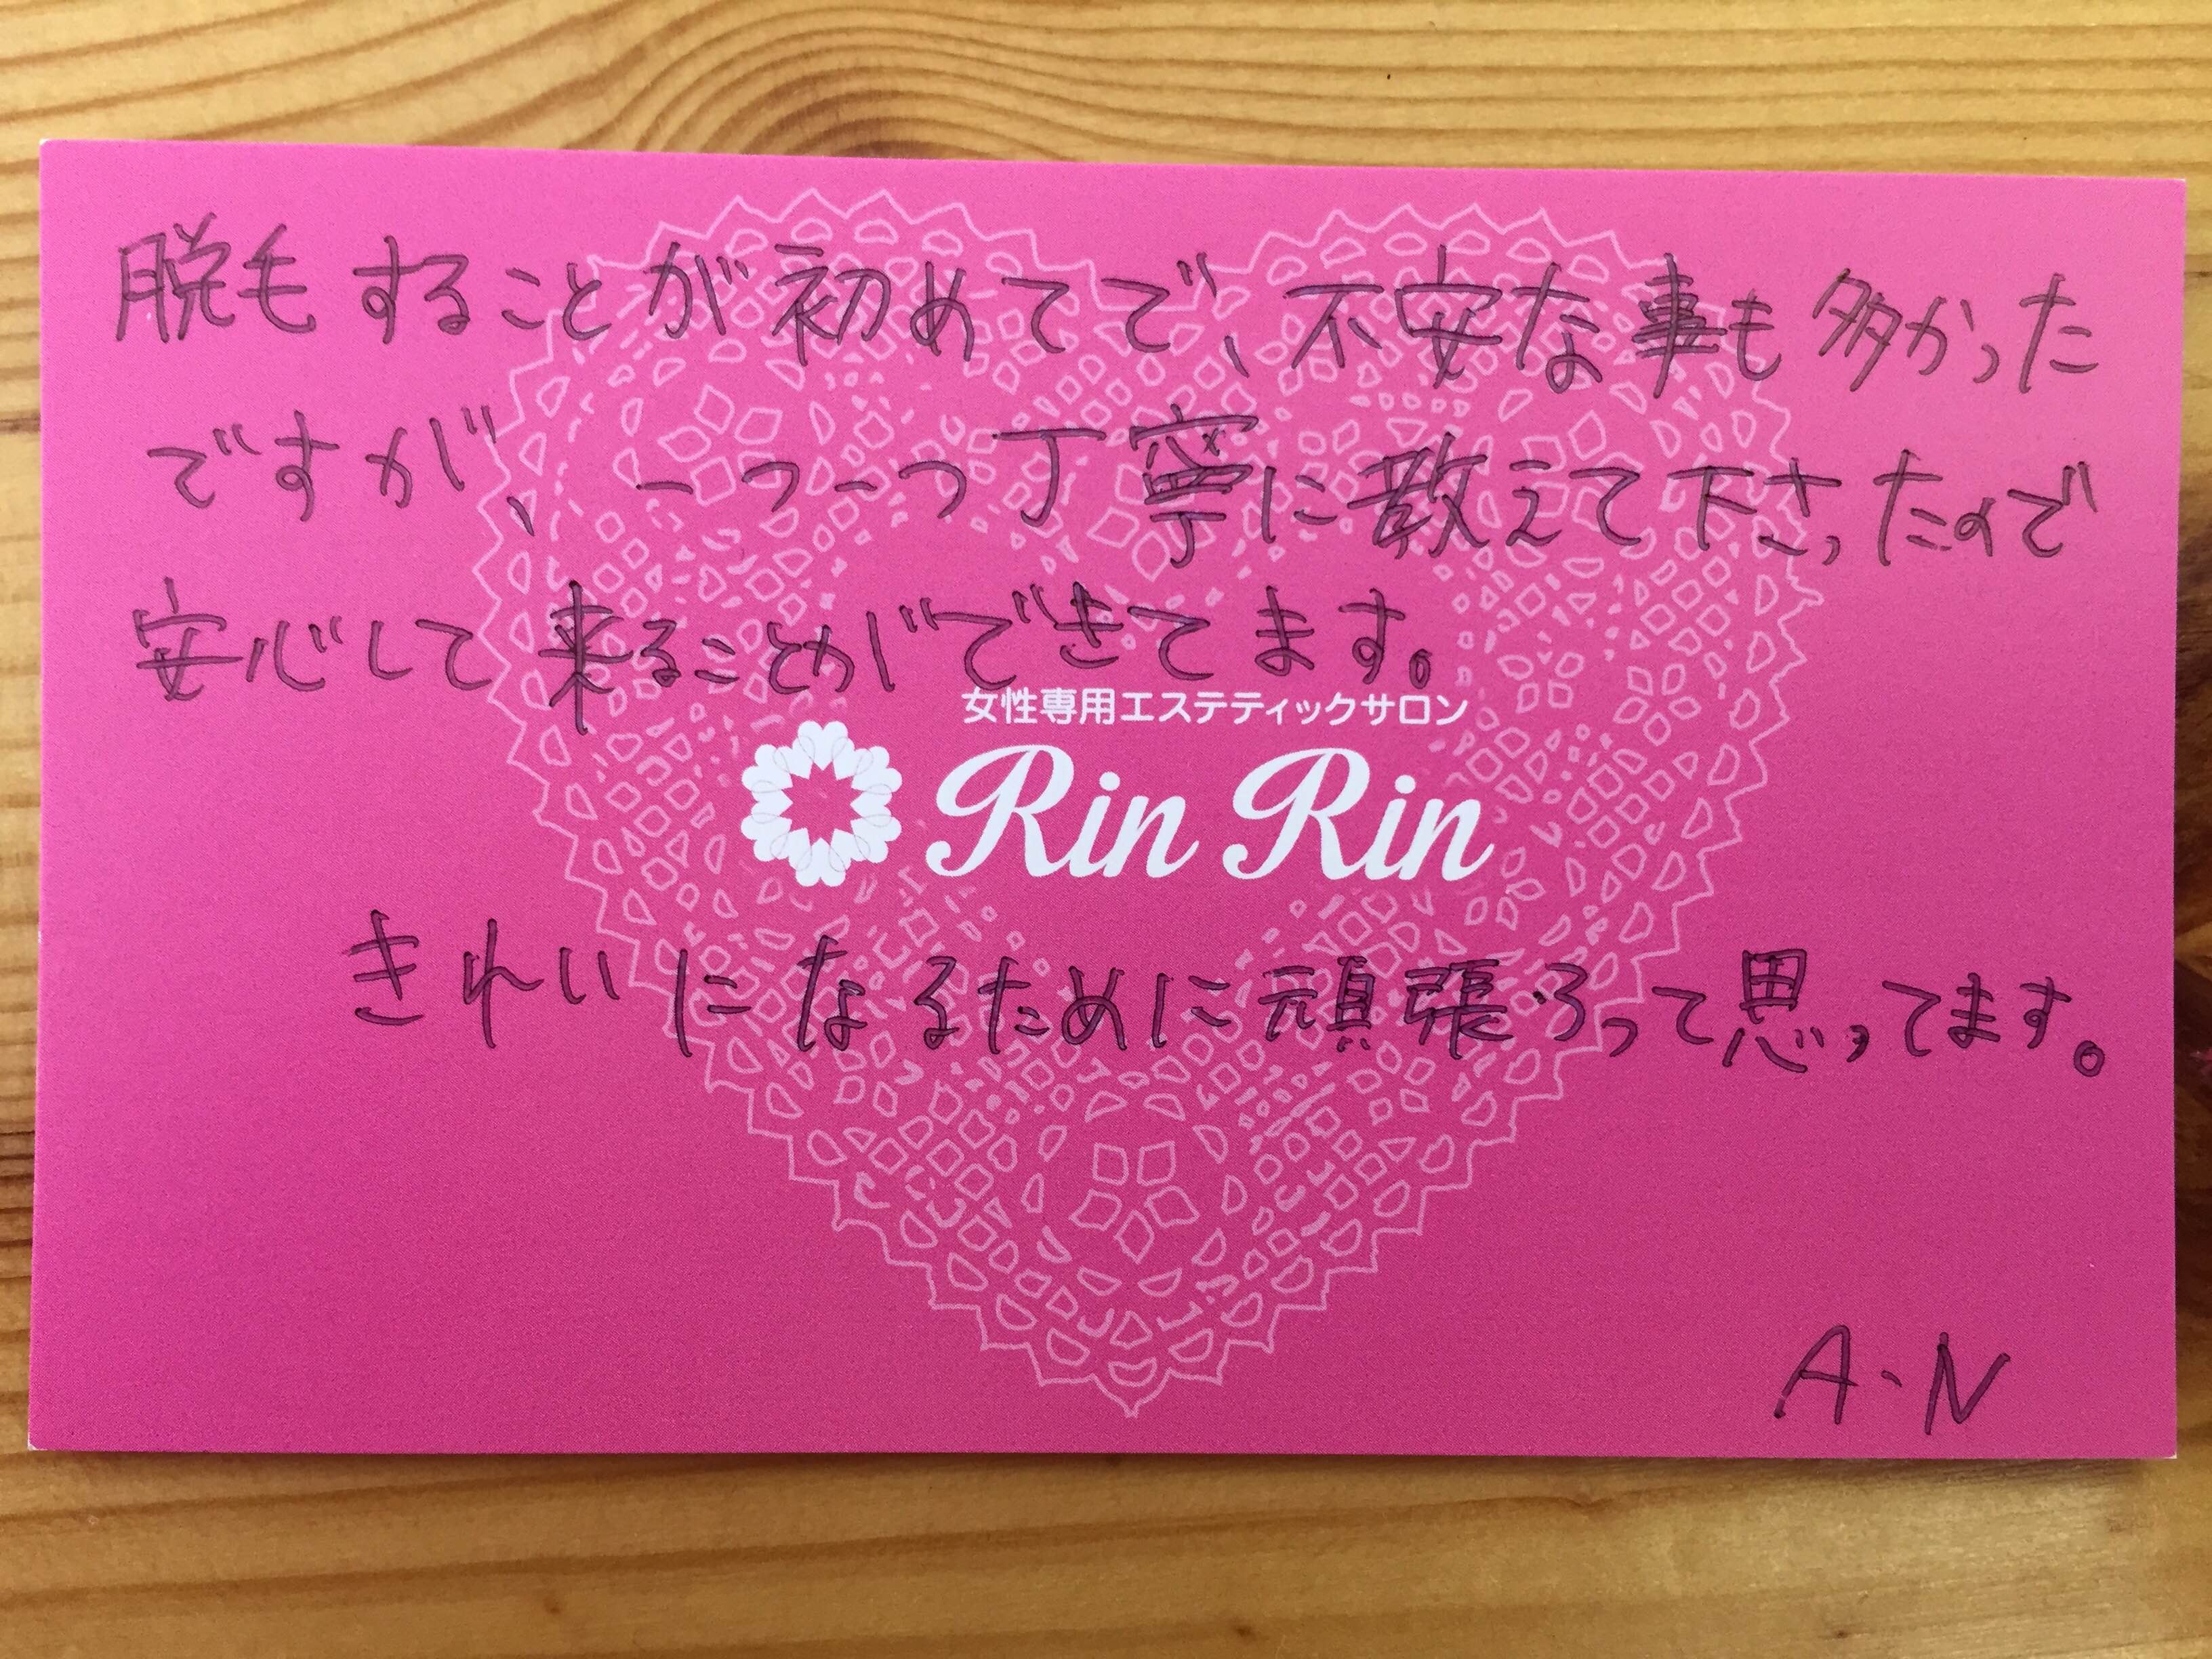 脱毛することが初めてで、不安な事も多かった
ですが、一つ一つ丁寧に教えて下さったので
安心して来ることができてます。
女性専用エステティックサロン
Rin Rin
きれいになるために頑張ろって思ってます。
A・N